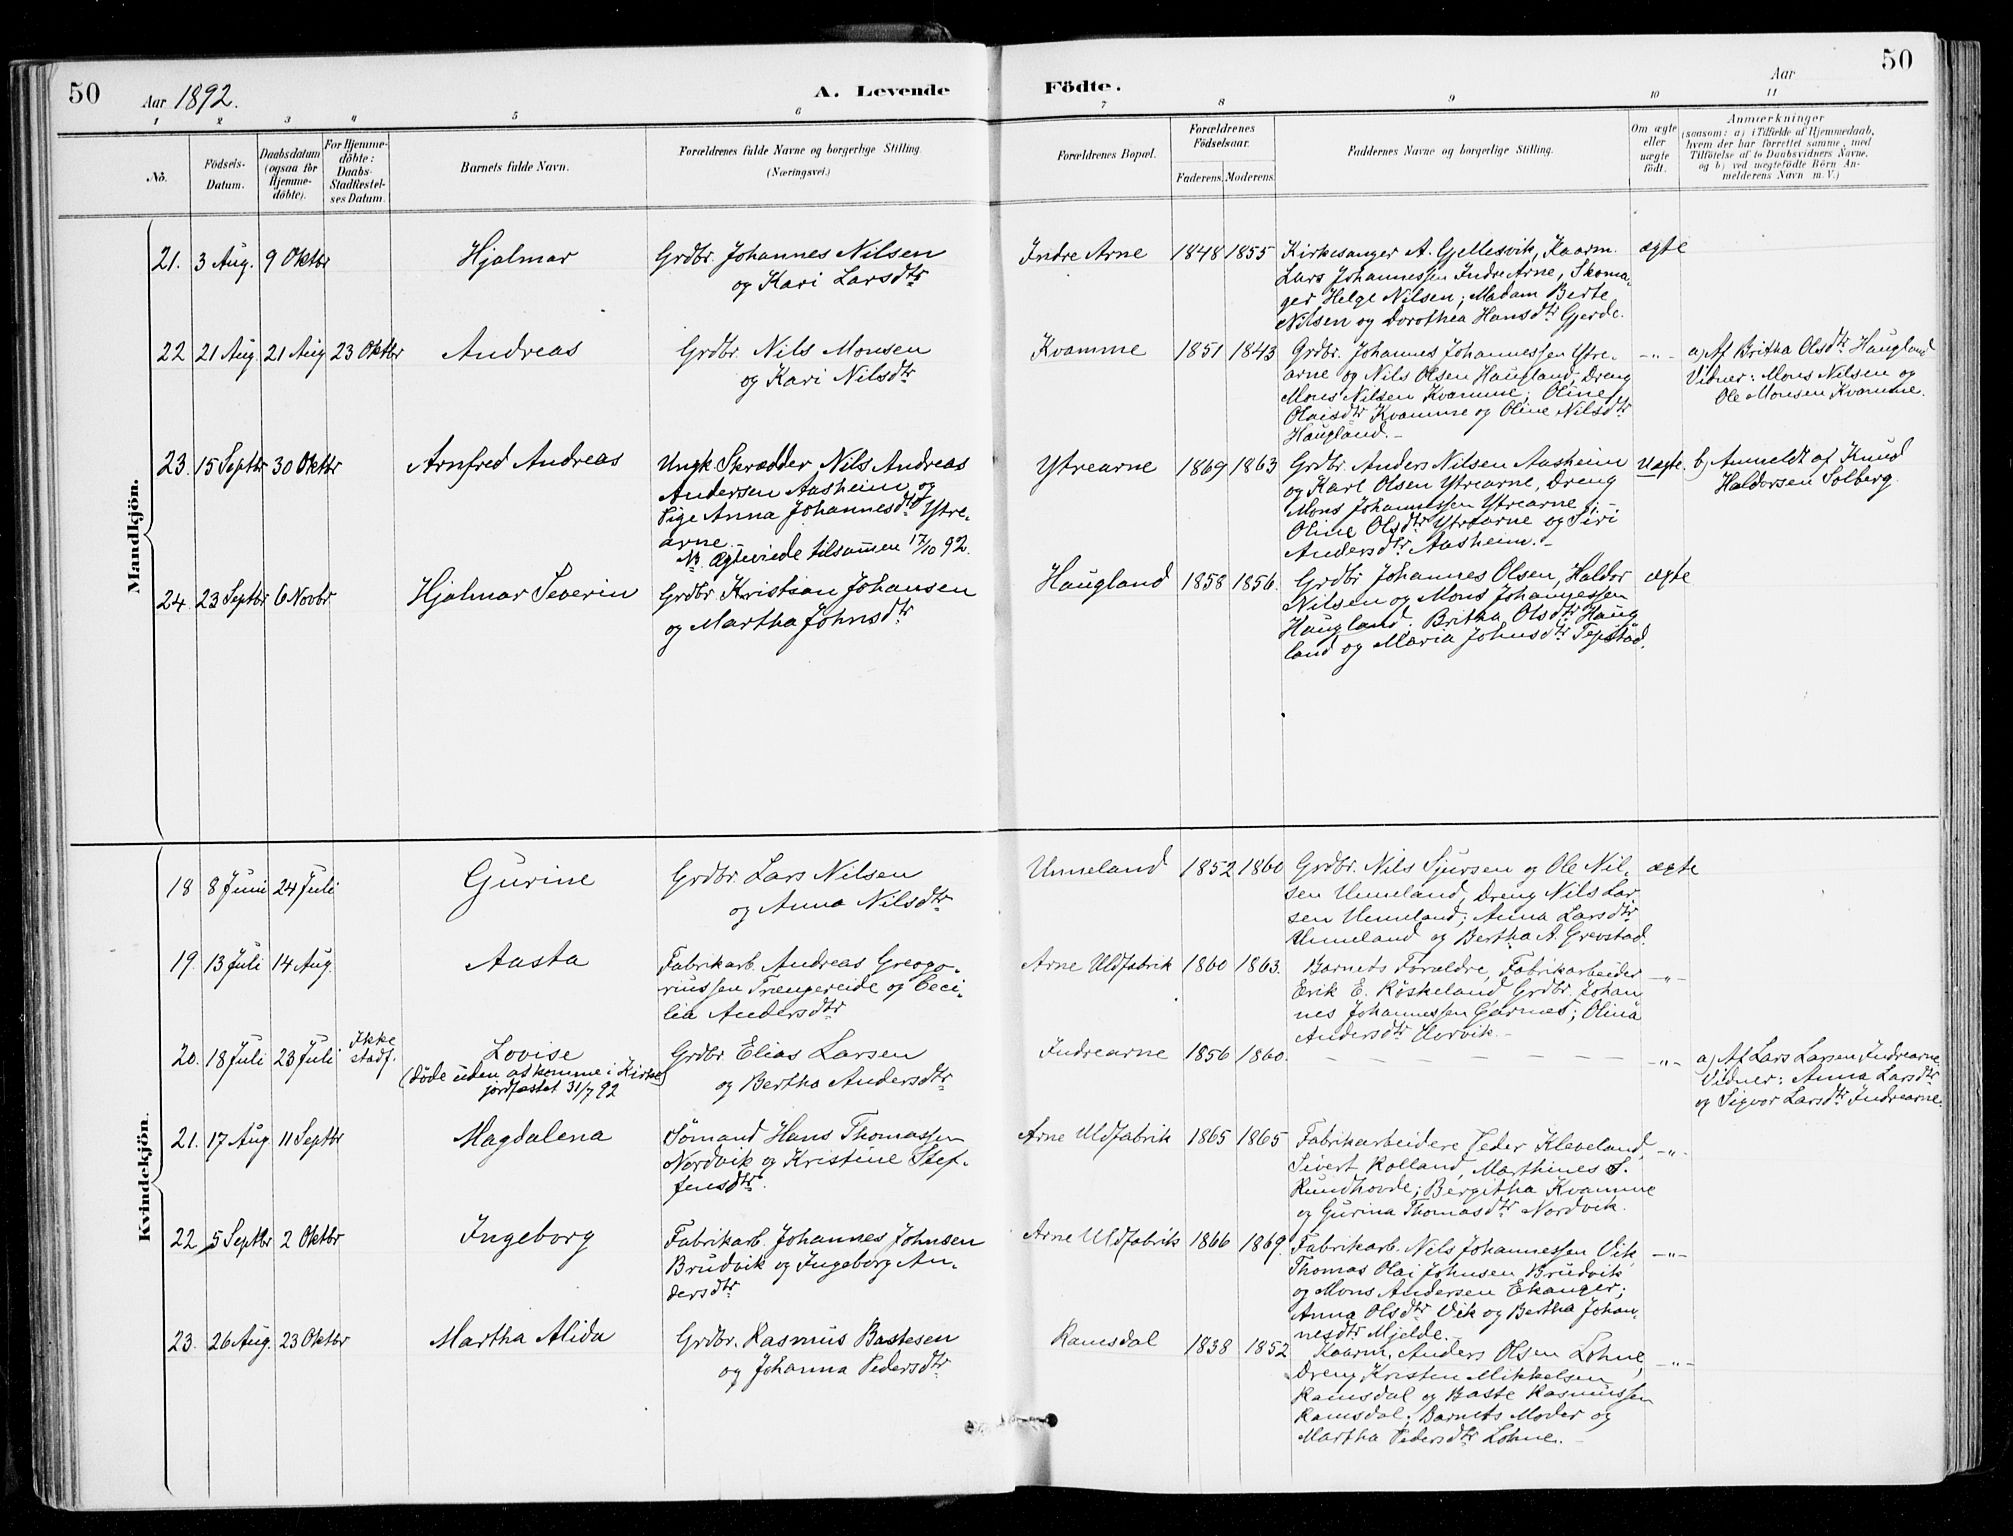 50
Aar 1892.
A. Levende
Födte.
Aar
50
1
2
3
4
5
6
7
8
9
10
11
No.
Födsels-
Datum.
Daabsdatum
(ogsaa for
Hjemme-
döbte).
For Hjemme-
döbte:
Daabs-
Stadfæstel-
ses Datum.
Barnets fulde Navn.
Forældrenes fulde Navne og borgerlige Stilling.
(Næringsvei.)
Forældrenes Bopæl.
Forældrenes
Födselsaar.
Faderens.
Moderens.
Faddernes Navne og borgerlige Stilling.
Om ægte
eller
uægte
födt.
Anmærkninger
(saasom: a) i Tilfælde af Hjemmedaab,
hvem der har forrettet samme, med
Tilföielse af to Daabsvidners Navne,
og b) ved uægtefödte Börn An-
melderens Navn m. V.)
Mandkjön.
21.
3 Aug.
9 Oktbr
Hjalmar
Grdbr. Johannes Nilsen
og Kari Larsdtr
Indre Arne
1848
1855
Kirkesanger A. Gjellesvik, Kaarm.
Lars Johannessen Indre Arne, Skoma-
ger Helge Nilsen; Madam Berte
Nilsen og Dorothea Hansdtr Gjerde.
ægte
22
21 Aug
21 Aug
23 Oktbr
Andreas
Grdbr. Nils Monsen
og Kari Nilsdtr
Kvamme
1851
1843
Grdbr. Johannes Johannessen Ytre-
arne og Nils Olsen Haugland, Dreng
Mons Nilsen Kvamme; Oline
Olaisdtr Kvamme og Oline Nilsdtr
Haugland.-
-"-
a) Af Britha Olsdtr Haugland
Vidner: Mons Nilsen og
Ole Monsen Kvamme.
23.
15 Septbr
30 Oktbr
Arnfred Andreas
Ungk. Skrædder Nils Andreas
Andersen Aasheim og
Pige Anna Johannesdtr Ytre-
arne.
NB. Ægteviede tilsammen 17/10 92.
Ytrearne
1869
1863
Grdbr. Anders Nilsen Aasheim
og Karl Olsen Ytrearne, Dreng
Mons Johannessen Ytrearne;
Oline Olsdtr Ytrearne og Siri
Andersdtr Aasheim.-
Uægte.
b) Anmeldt af Knud
Haldorsen Solberg.
24.
23 Septbr
6 Novbr
Hjalmar Severin
Grdbr. Kristian Johansen
og Martha Johnsdtr
Haugland
1858
1856.
Grdbr Johannes Olsen, Haldor
Nilsen og Mons Johannessen
Haugland; Britha Olsdtr Haug
land og Maria Johnsdtr Tepstad.
ægte
Kvindekjön.
18
8 Juni
24 Juli
Gurine
Grdbr. Lars Nilsen
og Anna Nilsdtr
Unneland
1852
1860
Grdbr. Nils Sjursen og Ole Nil-
sen Unneland, Dreng Nils Lar-
sen Unneland; Anna Larsdtr
Unneland og Bertha A. Grevstad.
ægte
19.
13 Juli
14 Aug.
Aasta
Fabrikarb. Andreas Grego-
riussen Trængereide og Ceci-
lia Andersdtr
Arne Uldfabrik
1860
1863.
Barnets Forældre, Fabrikarbeider
Erik E. Röskeland, Grdbr. Johan
nes Johannessen Garnes; Olina
Andersdtr Horvik.-
-"-
20.
18 Juli
23 Juli
Ikke
stadf.
Lovise
(döde uden at komme i Kirke)
jordfæstet 31/7 92
Grdbr Elias Larsen
og Bertha Andersdtr
Indrearne
1856
1860.
- - - - - - - -
-"-
a) Af Lars Larsen Indrearne
Vidner: Anna Larsdtr
og Sigvor Larsdtr Indrearne.
21.
17 Aug
11 Septbr
Magdalena
Sömand Hans Thomassen
Nordvik og Kristine Stef-
fensdtr.
Arne Uldfabrik
1865
1865
Fabrikarbeidere Peder Kleveland,
Sivert Rolland, Marthines S.
Rundhovde; Bergitha Kvamme
og Gurina Thomasdtr Nordvik.
-"-
22
5 Septbr
2 Oktbr
Ingeborg
Fabrikarb. Johannes Johnsen
Brudvik og Ingeborg An-
dersdtr
Arne Uldfabrik
1866
1869.
Fabrikarb. Nils Johannessen Vik,
Thomas Olai Johnsen Brudvik
og Mons Andersen Ekanger;
Anna Olsdtr Vik og Bertha Johan-
nesdtr Mjelde.-
-"-
23.
26 Aug.
23 Oktbr
Martha Alida
Grdbr. Rasmus Bastesen
og Johanna Pedersdtr
Ramsdal
1838
1852
Kaarm. Anders Olsen Lohne,
Dreng Kristen Mikkelsen
Ramsdal og Baste Rasmussen
Ramsdal; Barnets Moder og
Martha Pedersdtr Lohne.-
-"-